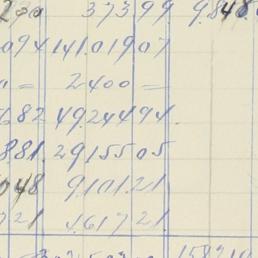 200 37399 9.848
094 14101907
= 2400 =
682 4924494
881. 2915505
048 910121
721 461721